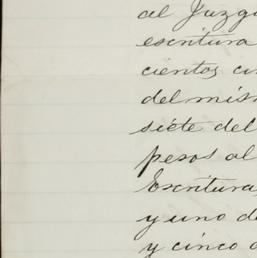 al Juzg
escritura
cientos ci
del mism
siete del
pesos al
Escritura
y uno de
y cinco d